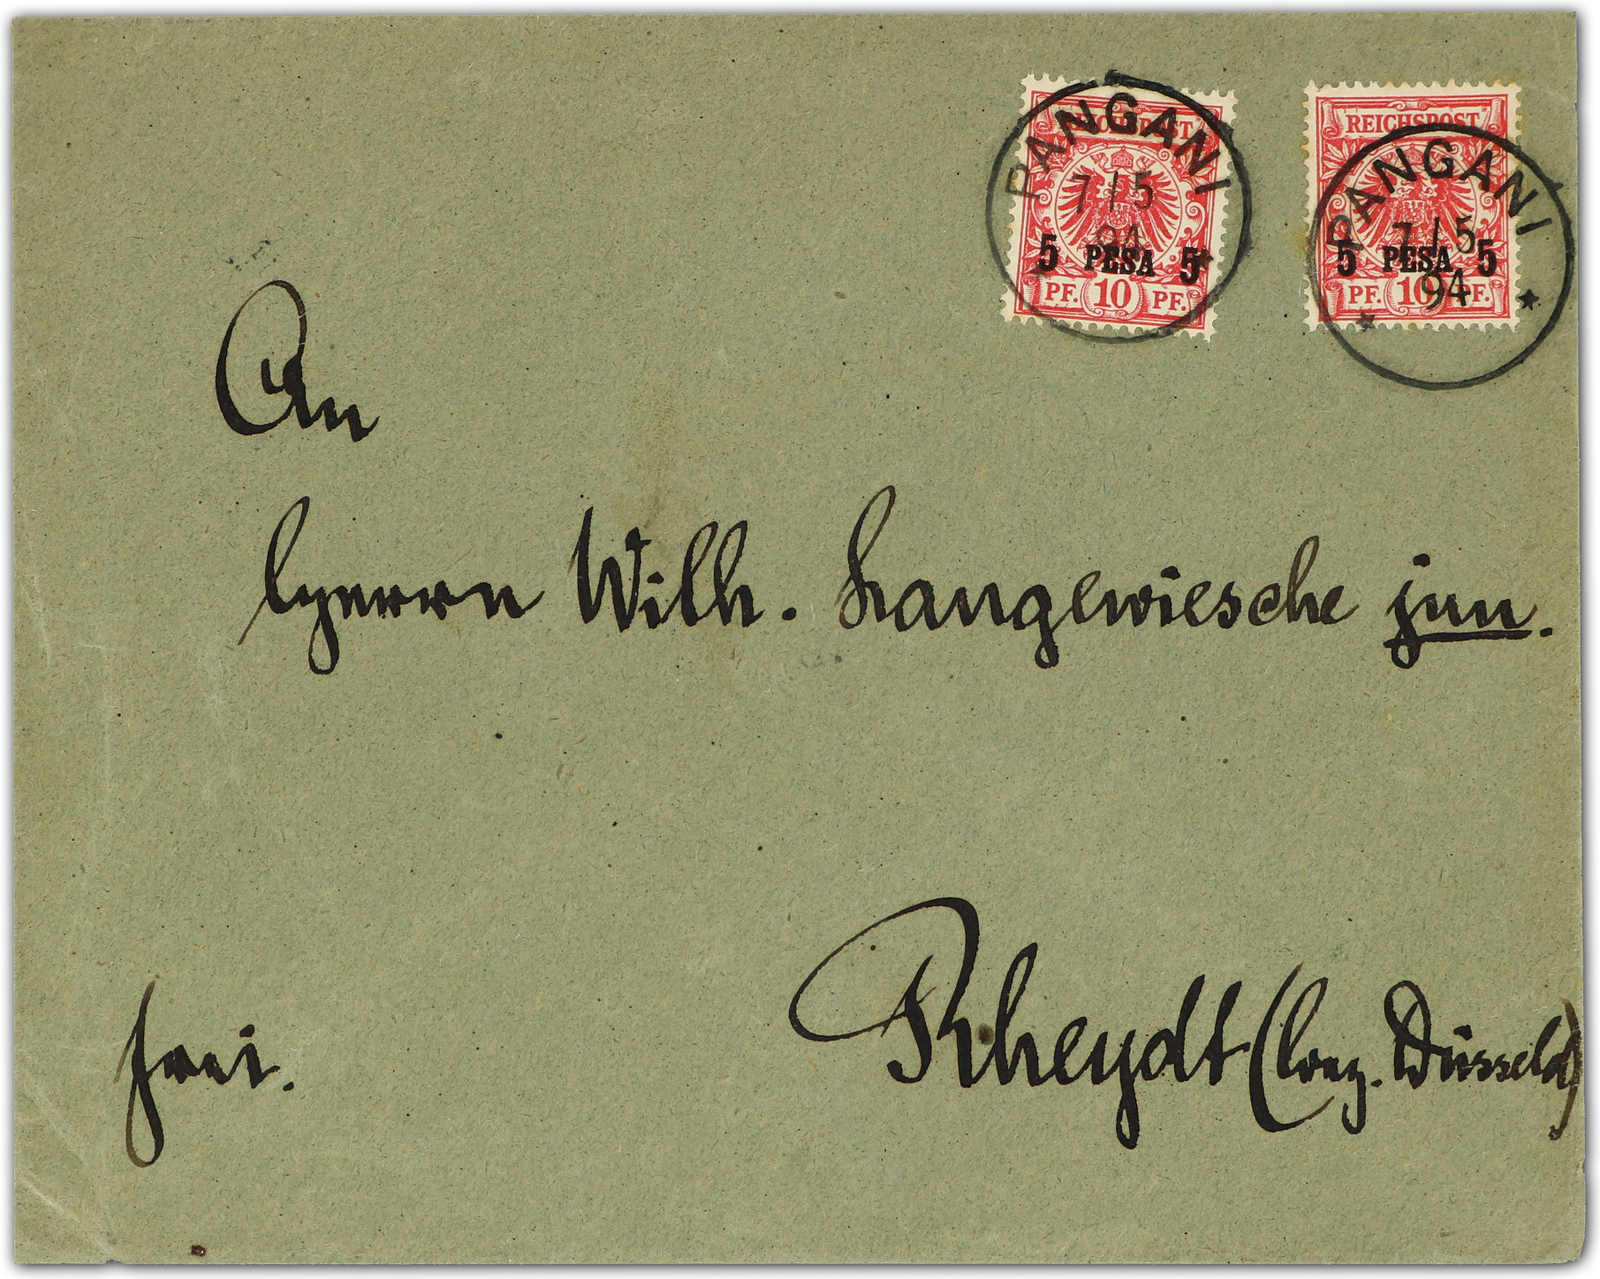 REICHSPOST
PANGANI
7/5
94
5 PESA 5
PF. 10 PF.
REICHSPOST
PANGANI
7/5
94
5 PESA 5
PF. 10 PF.
An
Herrn Wilh. Langewiesche jun.
frei.
Rheydt (Bez. Düsseld)